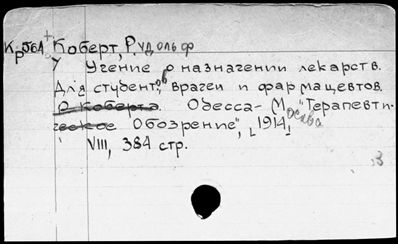 Кр56А+ Коберт, Рудольф
Учение о назначении лекарств.
Для студентов, врачей и фармацевтов.
Р. Коберта. Одесса-Москва "Терапевти-
ческое Обозрение", [1914]
VIII, 384 стр.